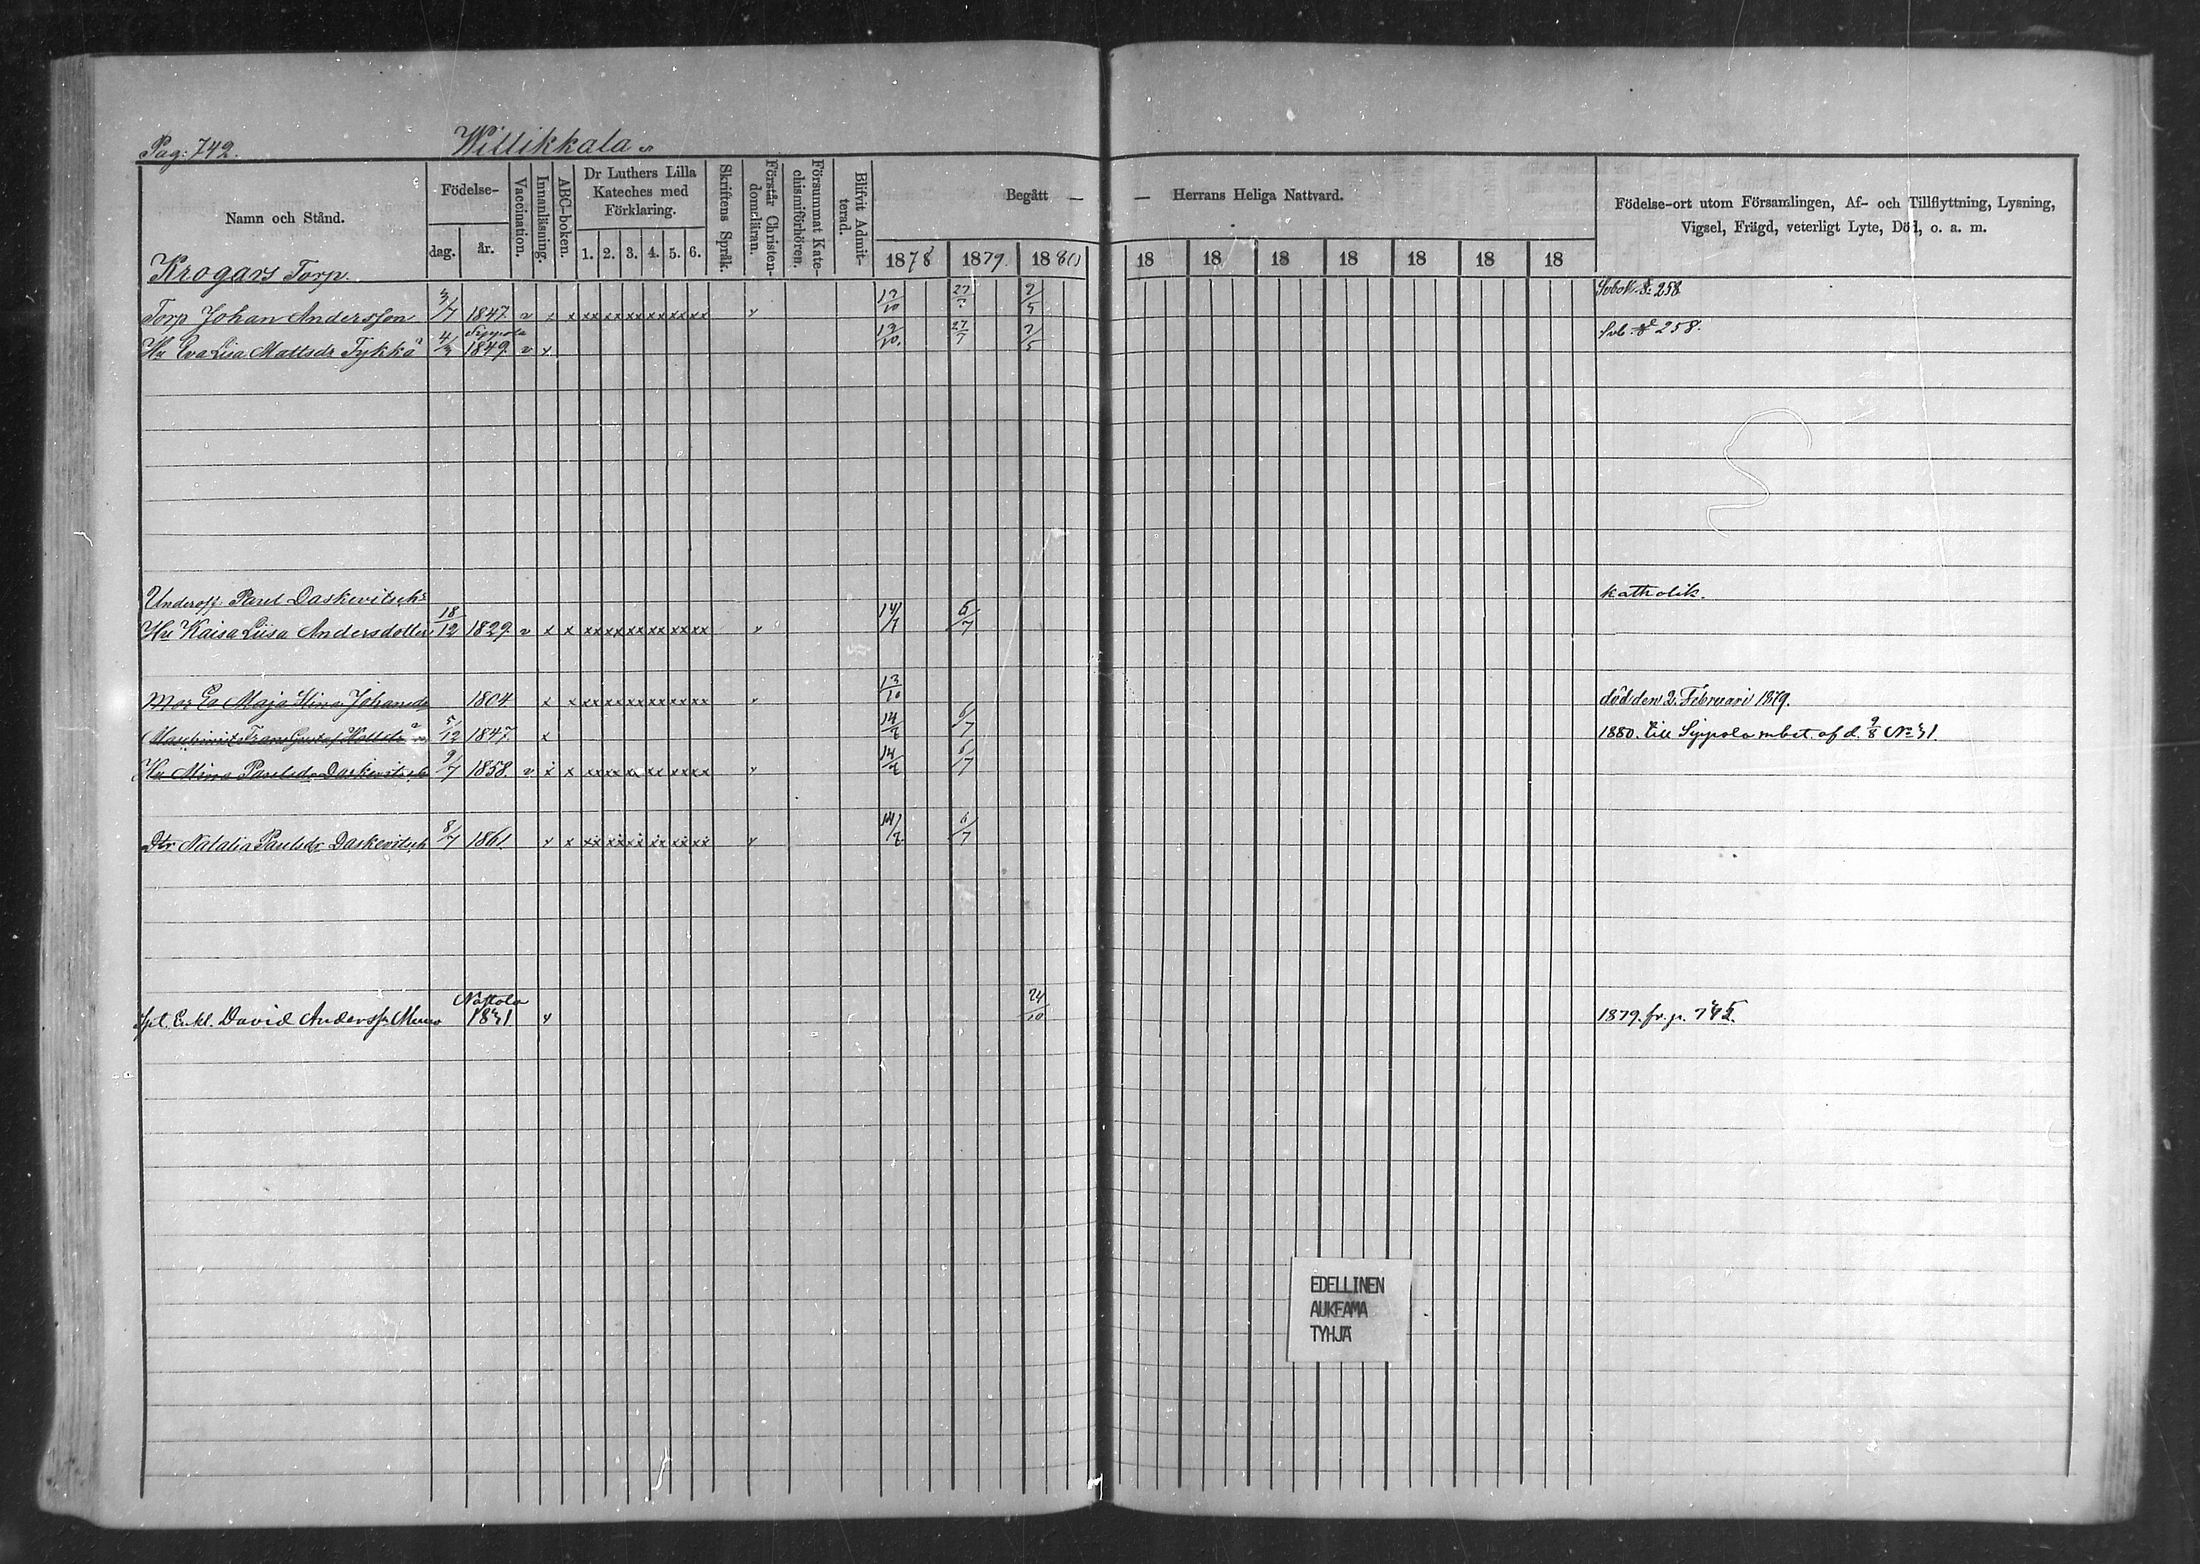 Pag: 742. Willikkala
Namn och Stånd. Födelse- dag. år. Vaccination. Innanläsning. ABC-boken. Dr Luthers Lilla Kateches med Förklaring. 1. 2. 3. 4. 5. 6. Skriftens Språk. Förstår Christendomsläran. Försummat Katechismiförhören. Blifvit Admitterad. Begått — — Herrans Heliga Nattvard. 1878 1879. 1880 18 18 18 18 18 18 18 Födelse-ort utom Församlingen, Af- och Tillflyttning, Lysning, Vigsel, Frägd, veterligt Lyte, Död, o. a. m.
Krogars Torp.
Torp Johan Andersson 3/7 1847. v x x xx xx xx xx xx xx v 13/10 27/7 2/5 258
Hu Eva Lisa Mattsdr Tykkä 4/3 Sippola 1849. v x 13/10. 27/7 2/5 258.
Underoff: Pavel Daskevitsch katholik.
Hu Kaisa Liisa Andersdotter 18/12 1829. v x x xx xx xx xx xx xx v 14/7 6/7
Mor Maja Stina Johansdr 1804 x x xx xx xx xx xx xx v 13/10 död den 2. Februari 1879.
Frans Gustaf 5/12 1847. x 14/7 6/7 1880. till Sippola mbet. af d. 9/8 No 31.
Hu Mina Paulsdr Daskevitsch 9/7 1858. v x x xx xx xx xx xx xx v 14/7 6/7
Dtr Natalia Paulsdr Daskevitsch 8/7 1861. x x xx xx xx xx xx xx v 14/7 6/7
David Anderss. 1831 x 24/10 1879. fr. p. 745.
EDELLINEN
AUKEAMA
TYHJÄ